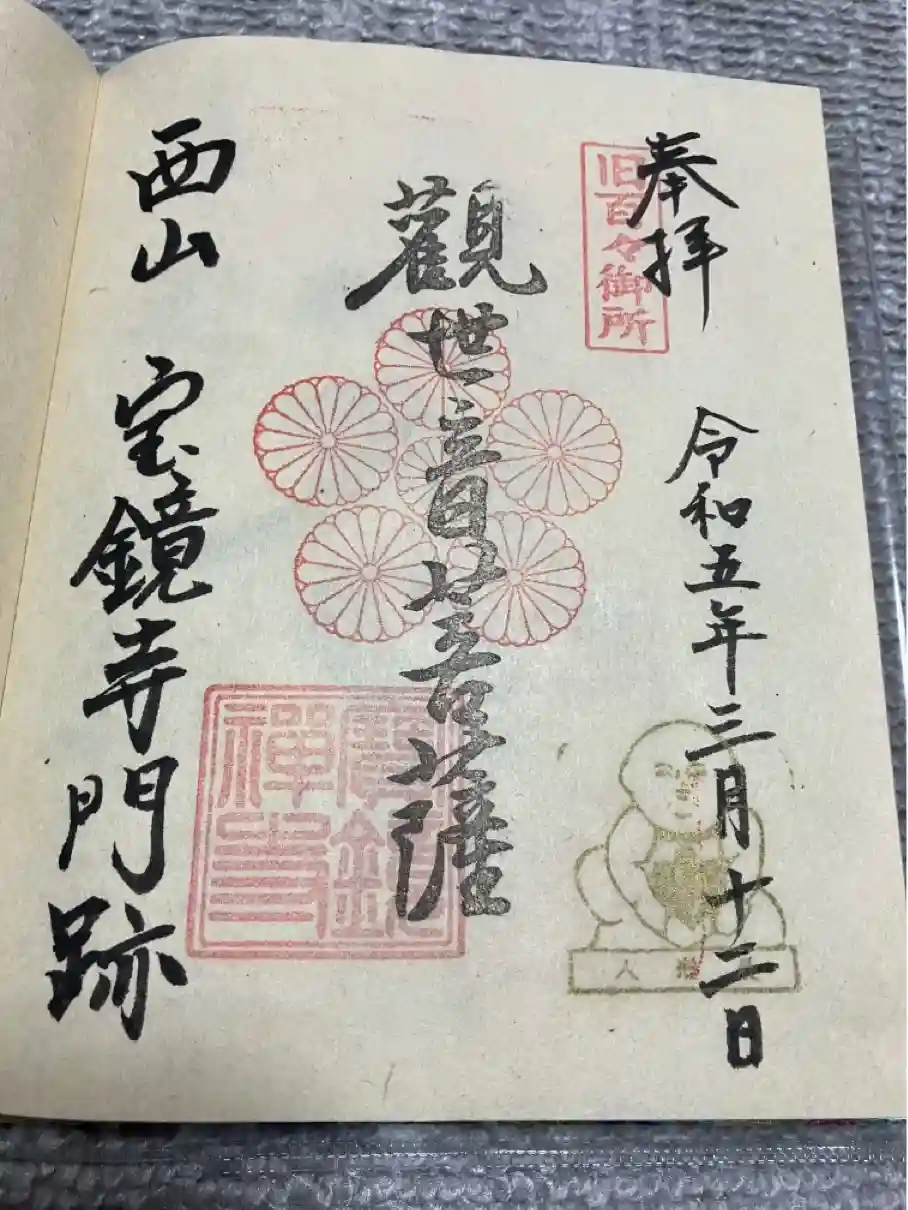 奉拝
旧百々御所
令和五年三月十二日
觀世音菩薩
寶鏡禅寺
西山 宝鏡寺門跡
人